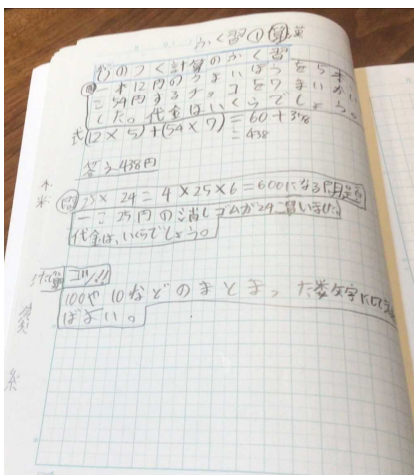 ふく習①算
()のつく計算のふく習
問 一本12円のうまいぼうを5本
一こ54円するチョコを7まいかい
ました。代金はいくらでしょう。
式(12×5)+(54×7)=60+378
=438
答え438円
問 25×24=4×25×6=600になる問題
一こ25円の消しゴムが24こ買いました。
代金は、いくらでしょう。
計算 コツ!!
100や10などのまとまった数字にして
ばよい。